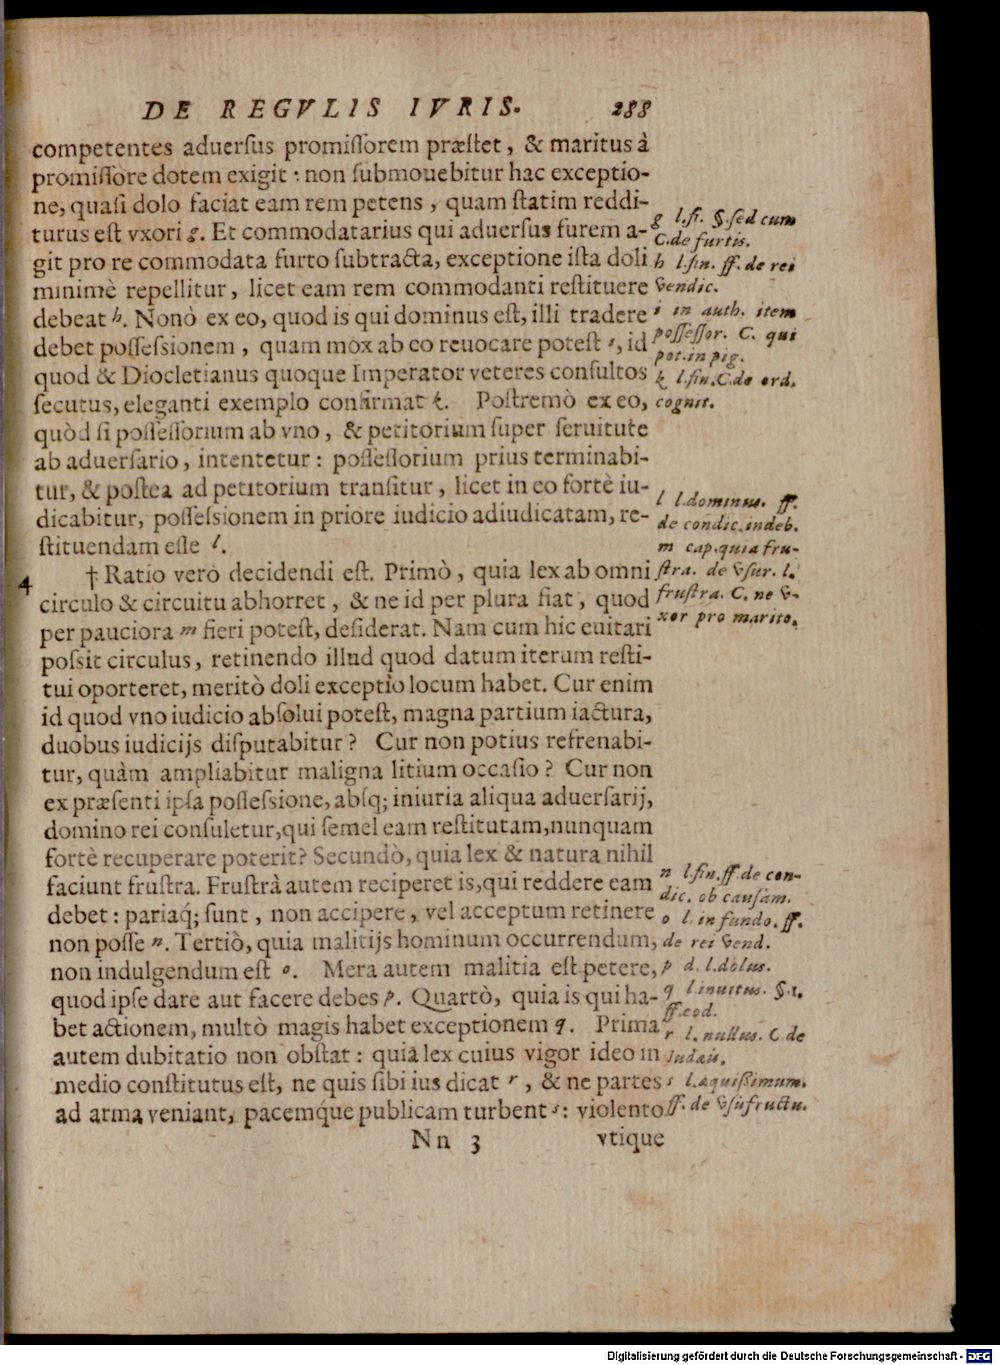 DE REGVLIS IVRIS. 288
competentes aduersus promissorem præstet, & maritus à
promissore dotem exigit: non submouebitur hac exceptio-
ne, quasi dolo faciat eam rem petens, quam statim reddi-
turus est vxori g. Et commodatarius qui aduersus furem a-
git pro re commodata furto subtracta, exceptione ista doli
minimè repellitur, licet eam rem commodanti restituere
debeat h. Nonò ex eo, quod is qui dominus est, illi tradere
debet possessionem, quam mox ab eo reuocare potest i, id
quod & Diocletianus quoque Imperator veteres consultos
secutus, eleganti exemplo confirmat k. Postremò ex eo,
quòd si possessorium ab vno, & petitorium super seruitute
ab aduersario, intentetur: possessorium prius terminabi-
tur, & postea ad petitorium transitur, licet in eo fortè iu-
dicabitur, possessionem in priore iudicio adiudicatam, re-
stituendam esse l.
4 † Ratio verò decidendi est. Primò, quia lex ab omni
circulo & circuitu abhorret, & ne id per plura fiat, quod
per pauciora m fieri potest, desiderat. Nam cum hic euitari
possit circulus, retinendo illud quod datum iterum resti-
tui oporteret, meritò doli exceptio locum habet. Cur enim
id quod vno iudicio absolui potest, magna partium iactura,
duobus iudicijs disputabitur? Cur non potius refrenabi-
tur, quàm ampliabitur maligna litium occasio? Cur non
ex præsenti ipsa possessione, absq; iniuria aliqua aduersarij,
domino rei consuletur, qui semel eam restitutam, nunquam
fortè recuperare poterit? Secundò, quia lex & natura nihil
faciunt frustra. Frustrà autem reciperet is, qui reddere eam
debet: pariaq́; sunt, non accipere, vel acceptum retinere
non posse n. Tertiò, quia malitijs hominum occurrendum,
non indulgendum est o. Mera autem malitia est petere,
quod ipse dare aut facere debes p. Quartò, quia is qui ha-
bet actionem, multò magis habet exceptionem q. Prima
autem dubitatio non obstat: quia lex cuius vigor ideo in
medio constitutus est, ne quis sibi ius dicat r, & ne partes
ad arma veniant, pacemque publicam turbent s: violento
Nn 3 vtique
g l.fi. §.sed cum
C.de furtis.
h l.fin. ff. de rei
vendic.
i in auth. item
possessor. C. qui
pot.in pig.
k l.fin.C.de ord.
cognit.
l l.dominus. ff.
de condic.indeb.
m cap.quia fru-
stra. de vsur. l.
frustra. C. ne v-
xor pro marito.
n l.fin.ff.de con-
dic. ob causam.
o l. in fundo. ff.
de rei vend.
p d. l.dolus.
q l.inuitus. §.1.
ff.eod.
r l. nullus. C de
Iudæis.
s l.æquissimum.
ff. de vsufructu.
Digitalisierung gefördert durch die Deutsche Forschungsgemeinschaft - DFG